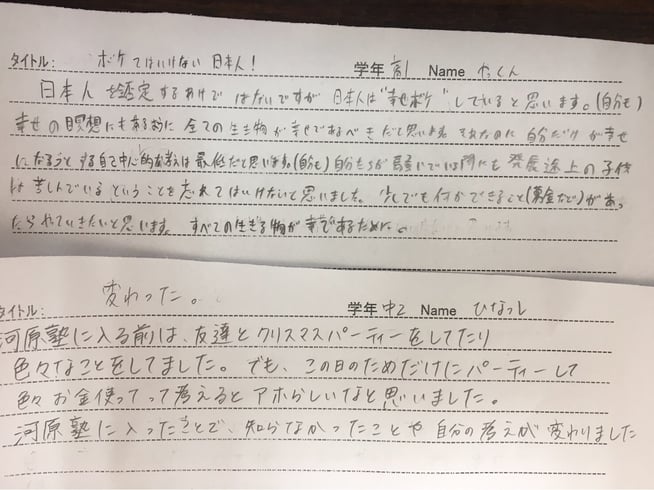 タイトル: ボケてはいけない日本人! 学年 高1 Name やっくん
日本人を否定するわけではないですが日本人は"幸せボケ"していると思います。(自分も)
幸せの瞑想にもあるように全ての生き物が幸せであるべきだと思います。それなのに自分だけが幸せ
になろうとする自己中心的な考えは最低だと思います。(自分も)自分たちが騒いでいる間にも発展途上の子供
は苦しんでいるということを忘れてはいけないと思いました。少しでも何かできること(募金など)があっ
たらやっていきたいと思います。すべての生き物が幸せであるために。
タイトル: 変わった。 学年 中2 Name ひなっし
河原塾に入る前は、友達とクリスマスパーティーをしてたり
色々なことをしてました。でも、この日のためだけにパーティーして
色々お金使ってって考えるとアホらしいなと思いました。
河原塾に入ったことで、知らなかったことや自分の考えが変わりました